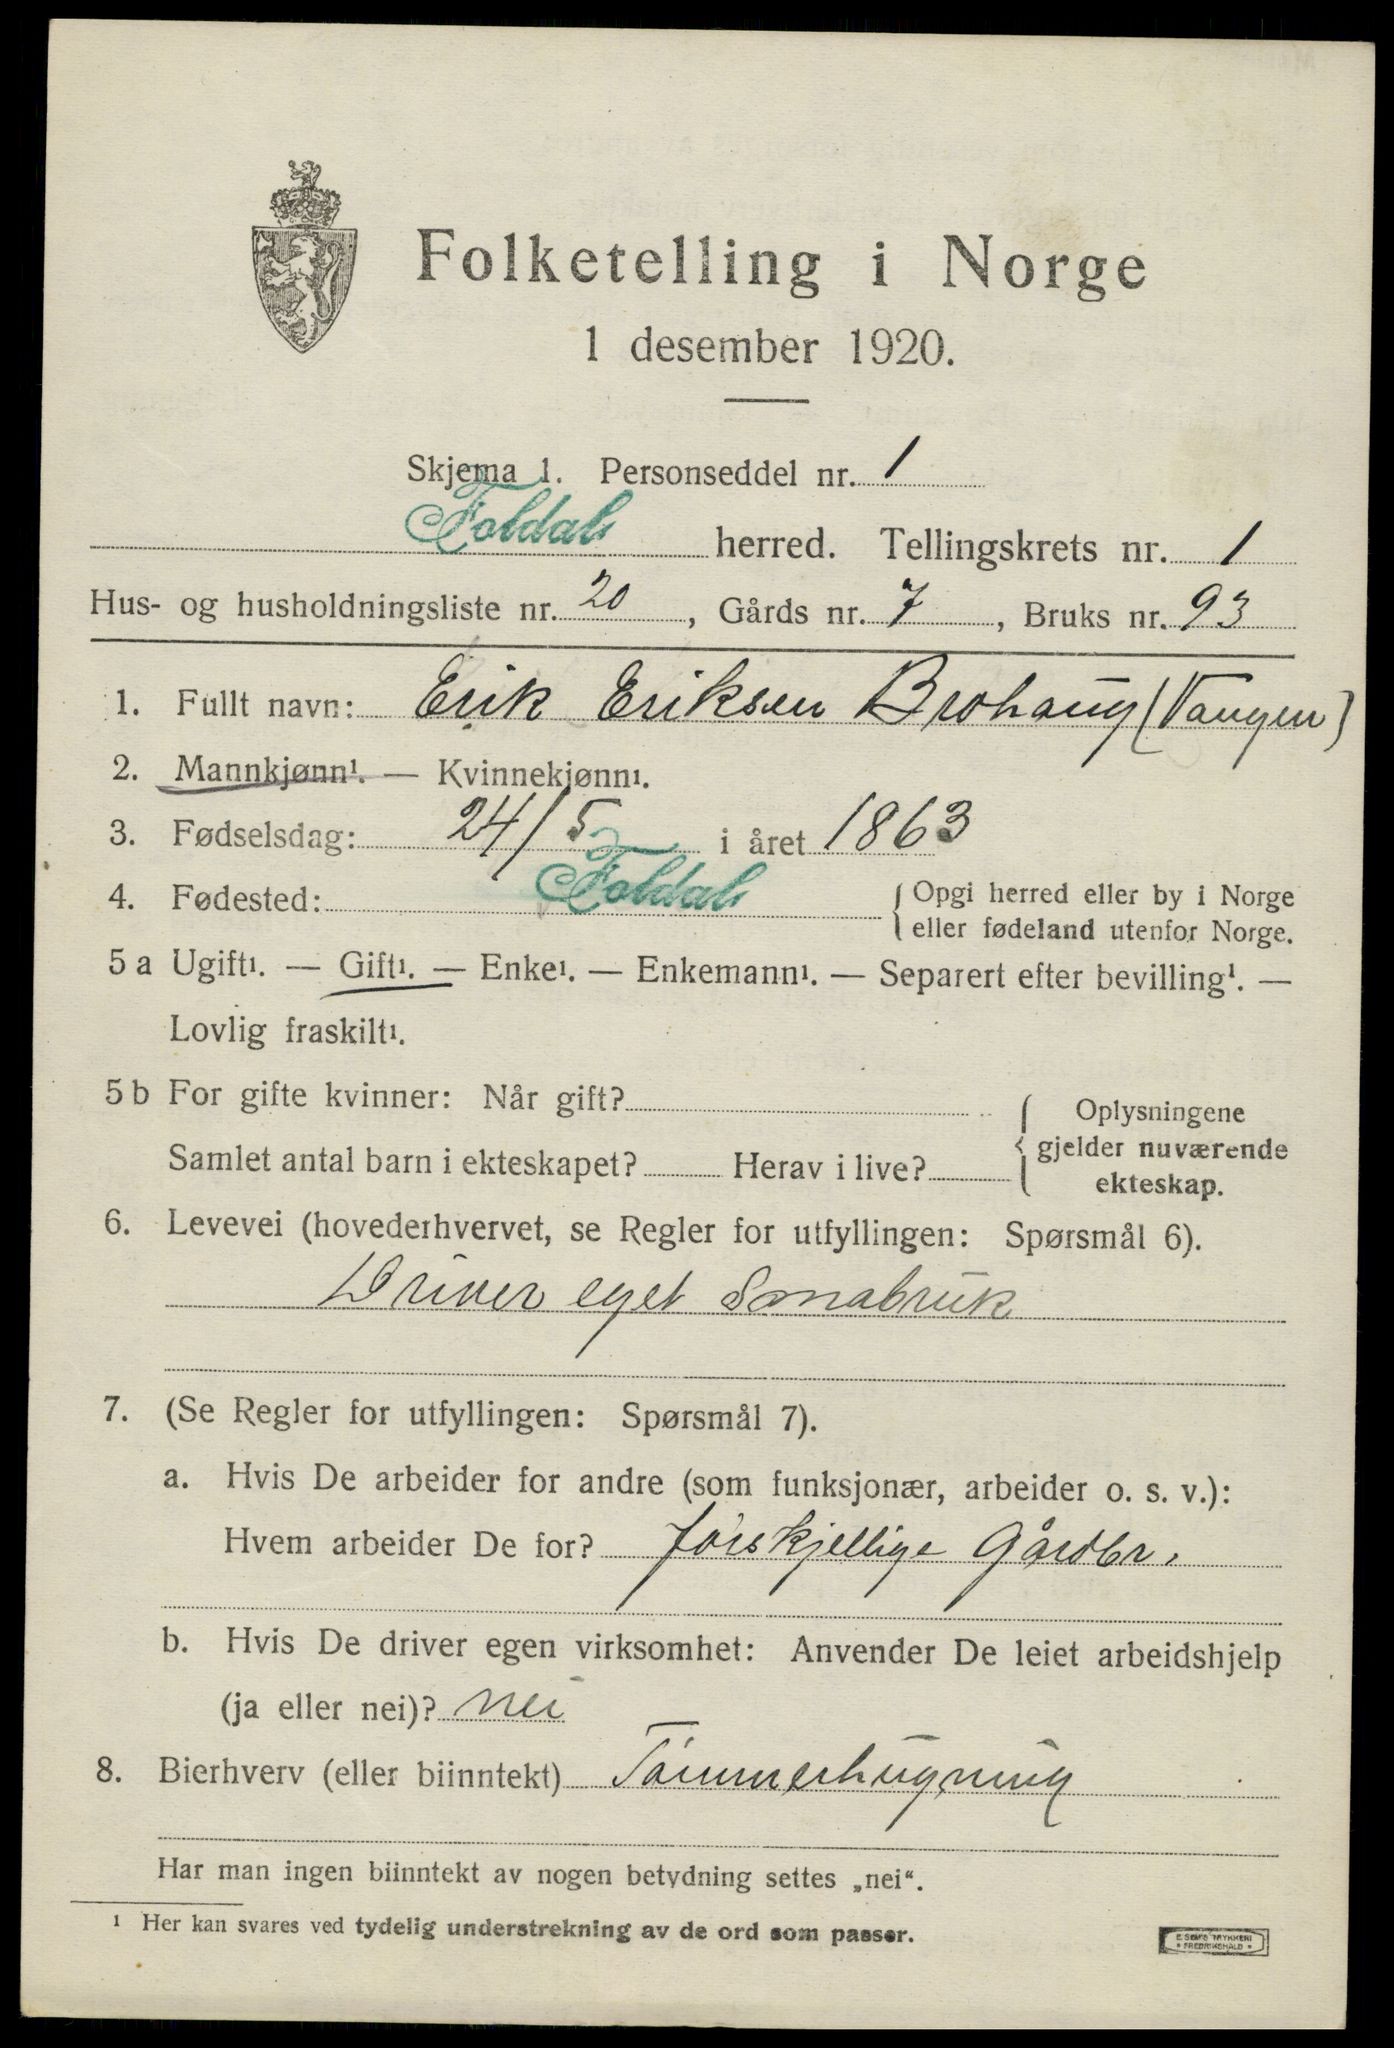 Folketelling i Norge
1 desember 1920.
Skjema 1. Personseddel nr. 1
Foldal herred. Tellingskrets nr. 1
Hus- og husholdningsliste nr. 20, Gårds nr. 7, Bruks nr. 93
1. Fullt navn: Erik Eriksen Brohaug (Vangen)
2. Mannkjønn¹. — Kvinnekjønn¹.
3. Fødselsdag: 24/5 i året 1863
4. Fødested: Foldal { Opgi herred eller by i Norge
eller fødeland utenfor Norge.
5 a Ugift¹. — Gift¹. — Enke¹. — Enkemann¹. — Separert efter bevilling¹. —
Lovlig fraskilt¹.
5 b For gifte kvinner: Når gift? { Oplysningene
gjelder nuværende
Samlet antal barn i ekteskapet? Herav i live?
ekteskap.
6. Levevei (hovederhvervet, se Regler for utfyllingen: Spørsmål 6).
Driver eget Smabruk
7. (Se Regler for utfyllingen: Spørsmål 7).
a. Hvis De arbeider for andre (som funksjonær, arbeider o. s. v.):
Hvem arbeider De for? forskjellige Gårdbr.
b. Hvis De driver egen virksomhet: Anvender De leiet arbeidshjelp
(ja eller nei)? nei
8. Bierhverv (eller biinntekt) Tømmerhugning
Har man ingen biinntekt av nogen betydning settes „nei“.
¹ Her kan svares ved tydelig understrekning av de ord som passer.
E. SEMS TRYKKERI
• FREDRIKSHALD •